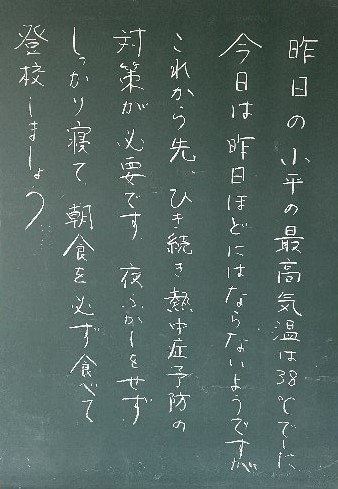 昨日の小平の最高気温は38℃でした
今日は昨日ほどにはならないようですが
これから先、ひき続き熱中症予防の
対策が必要です。夜ふかしをせず
しっかり寝て 朝食を必ず食べて
登校しましょう。